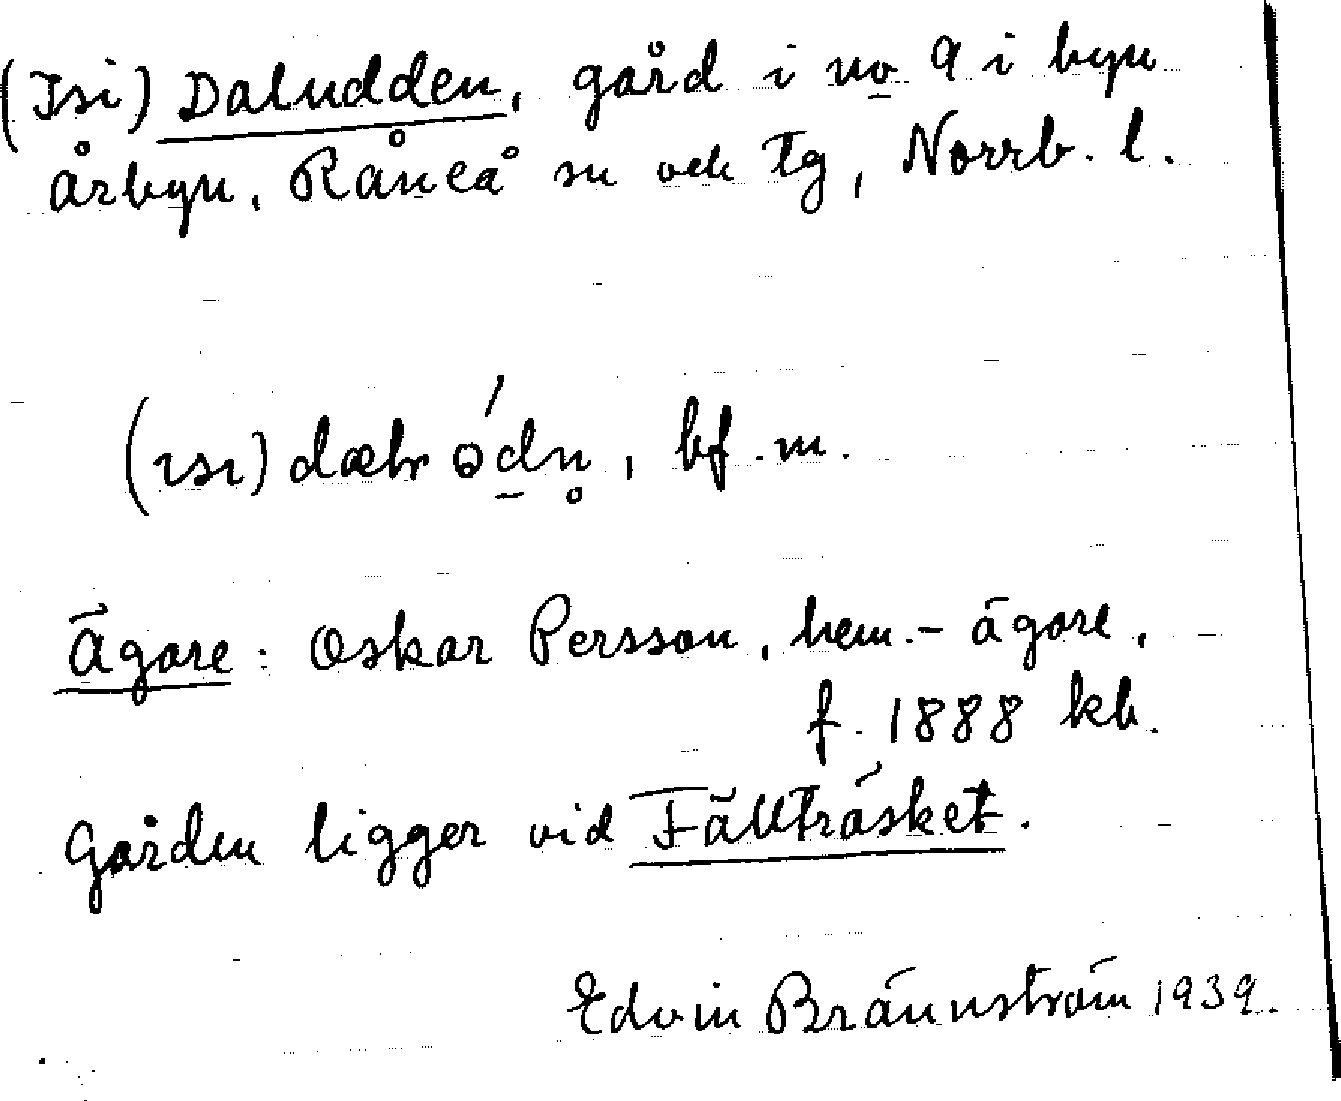 (Isi) Daludden, gård i no 9 i byn
Årbyn, Råneå sn och tg, Norrb. l.
(ısı) , bf. m.
Ägare: Oskar Persson, hem.-ägare,
f. 1888 kb.
Gården ligger vid Fällträsket.
Edvin Brännström 1939.